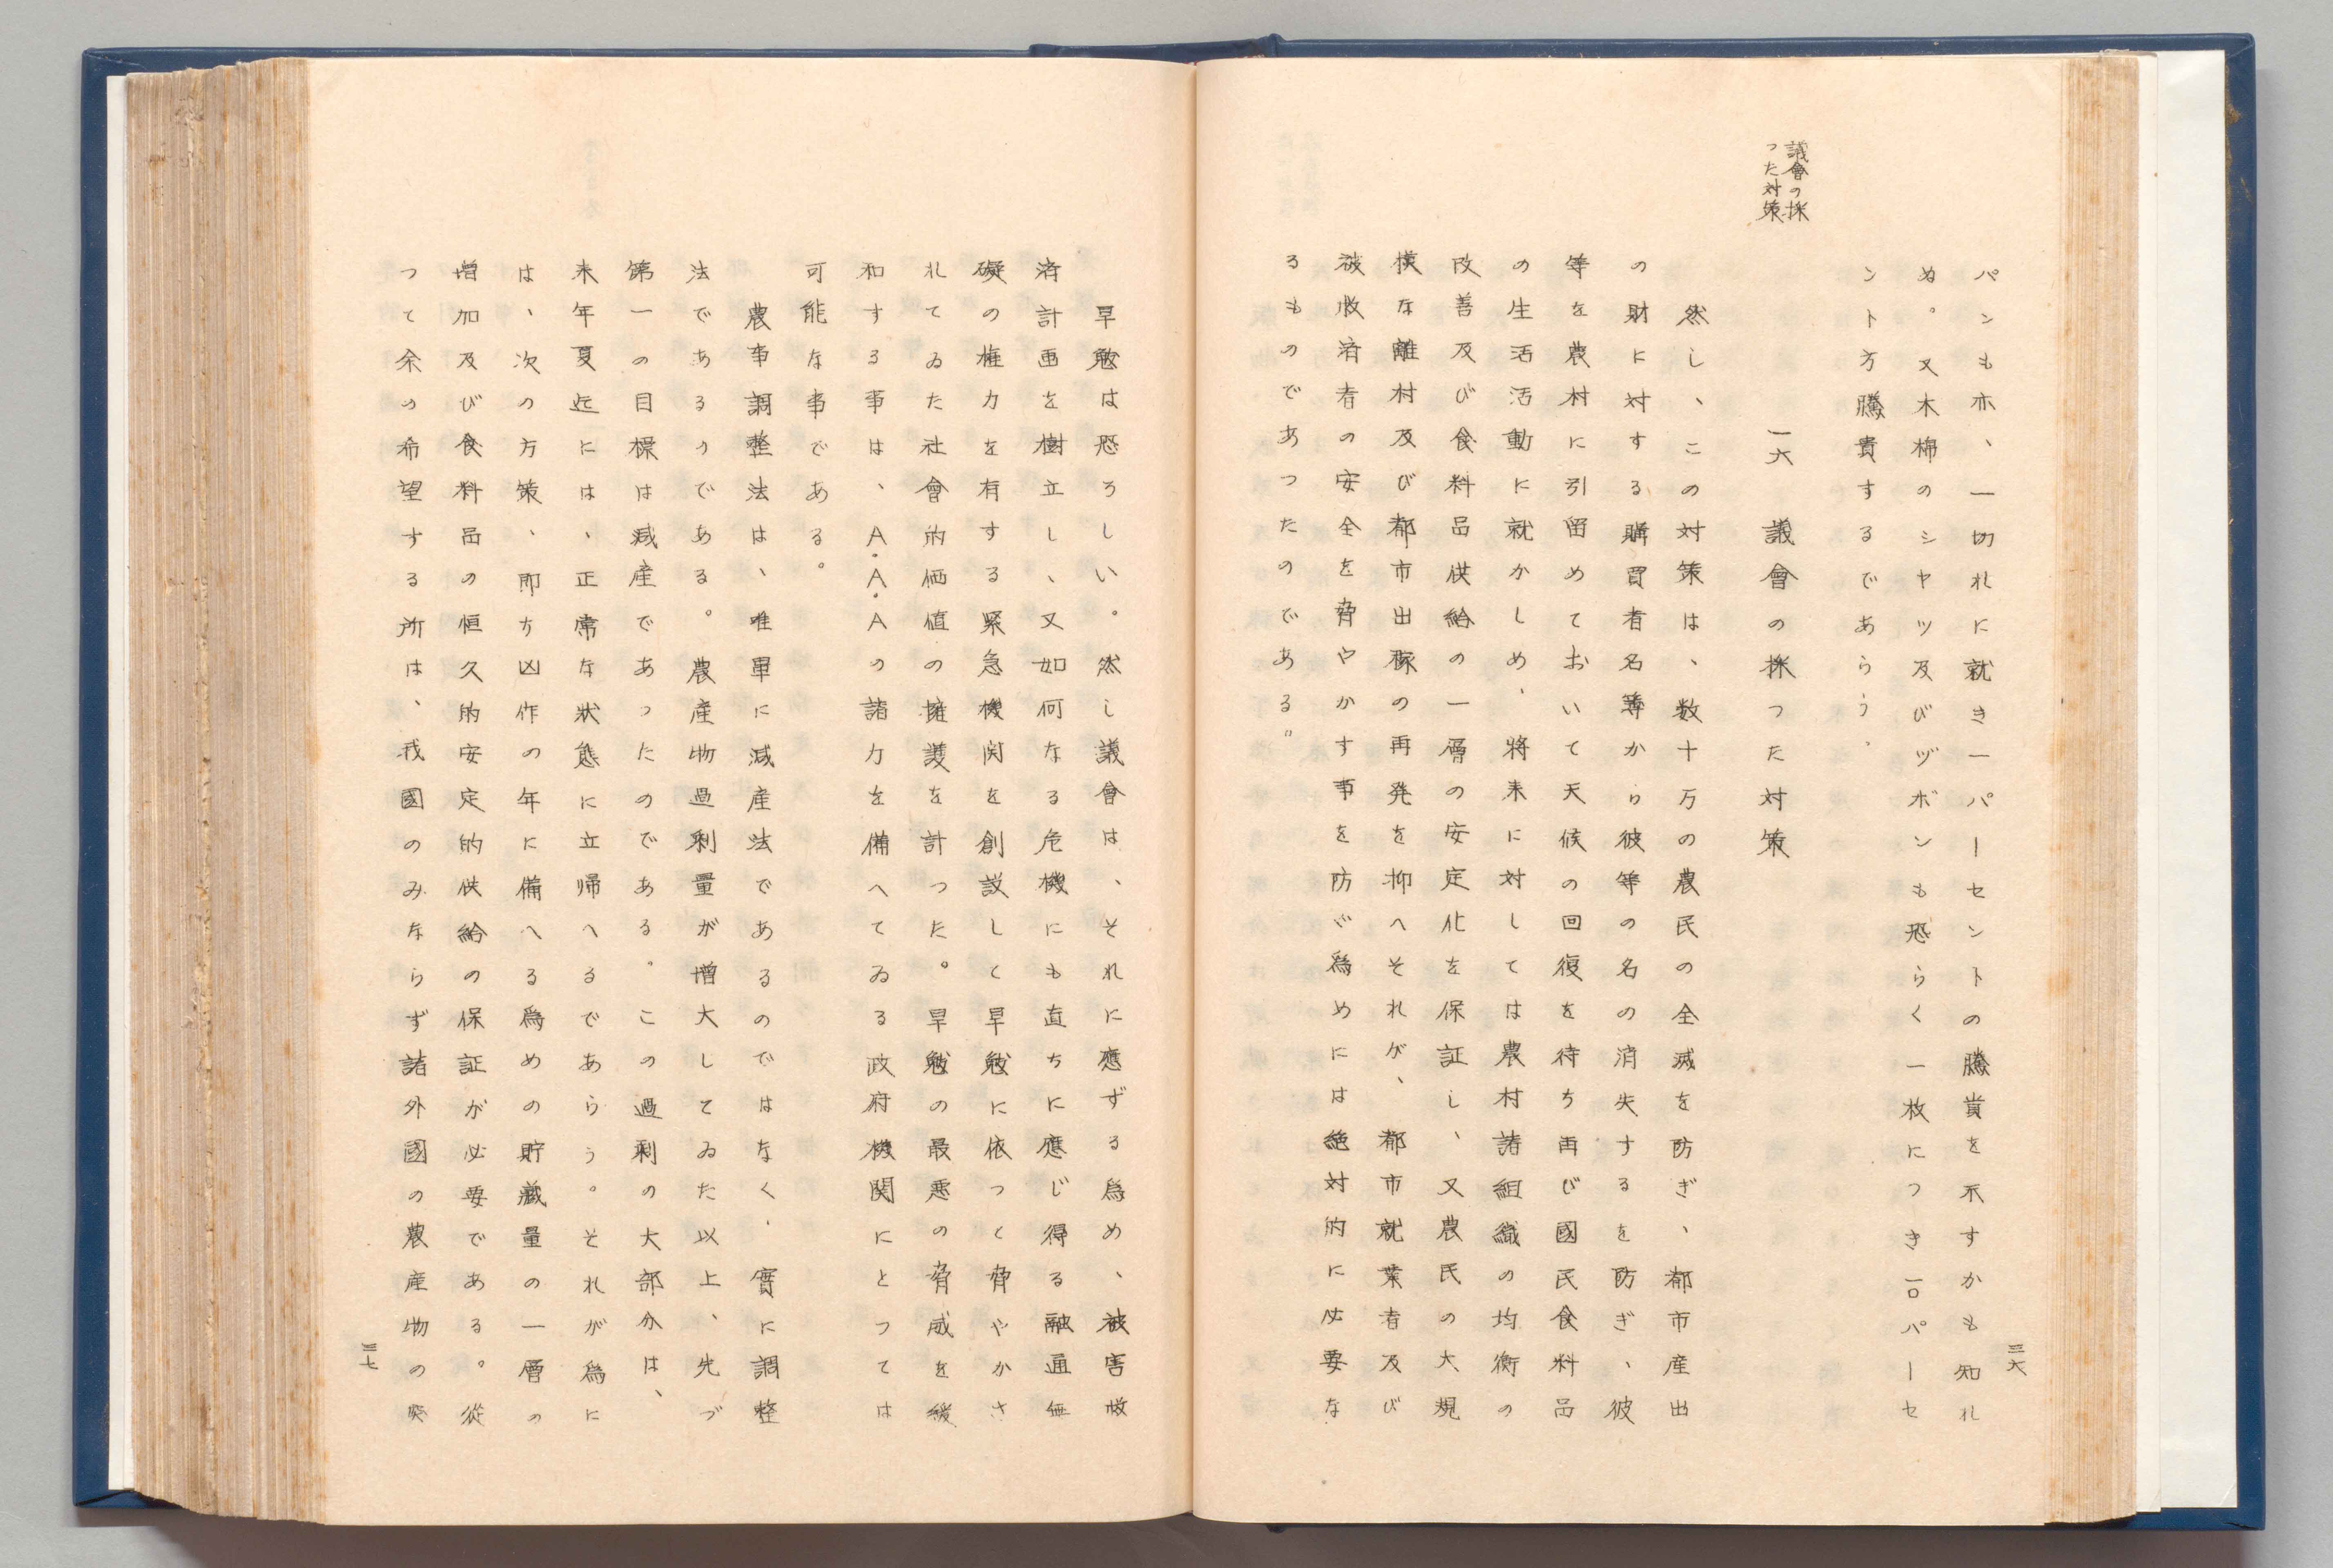 三六
議會の採
つた対策
パンも亦、一切れに就き一パーセントの騰貴を示すかも知れ
ぬ。又木棉のシヤツ及びヅボンも恐らく一枚につき一〇パーセ
ント方騰貴するであらう。
一六　議會の採つた対策
然し、この対策は、数十万の農民の全滅を防ぎ、都市産出
の財に対する購買者名簿から彼等の名の消失するを防ぎ、彼
等を農村に引留めておいて天候の回復を待ち再び國民食料品
の生活活動に就かしめ、將来に対しては農村諸組織の均衡の
改善及び食料品供給の一層の安定化を保証し、又農民の大規
模な離村及び都市出稼の再発を抑へそれが、都市就業者及び
被救済者の安全を脅やかす事を防ぐ為めには絶対的に必要な
るものであつたのである〃
旱魃は恐ろしい。然し議會は、それに應ずる為め、被害救
済計画を樹立し、又如何なる危機にも直ちに應じ得る融通無
礙の権力を有する緊急機関を創設して旱魃に依つて脅やかさ
れてゐた社會的価値の擁護を計つた。旱魃の最悪の脅威を緩
和する事は、A・A・Aの諸力を備へてゐる政府機関にとつては
可能な事である。
農事調整法は、唯單に減産法であるのではなく、實に調整
法であるのである。農産物過剰量が増大してゐた以上、先づ
第一の目標は減産であつたのである。この過剰の大部分は、
来年夏迄には、正常な状態に立帰へるであらう。それが為に
は、次の方策、即ち凶作の年に備へる為めの貯藏量の一層の
増加及び食料品の恒久的安定的供給の保証が必要である。從
つて余の希望する所は、我國のみならず諸外國の農産物の突
三七